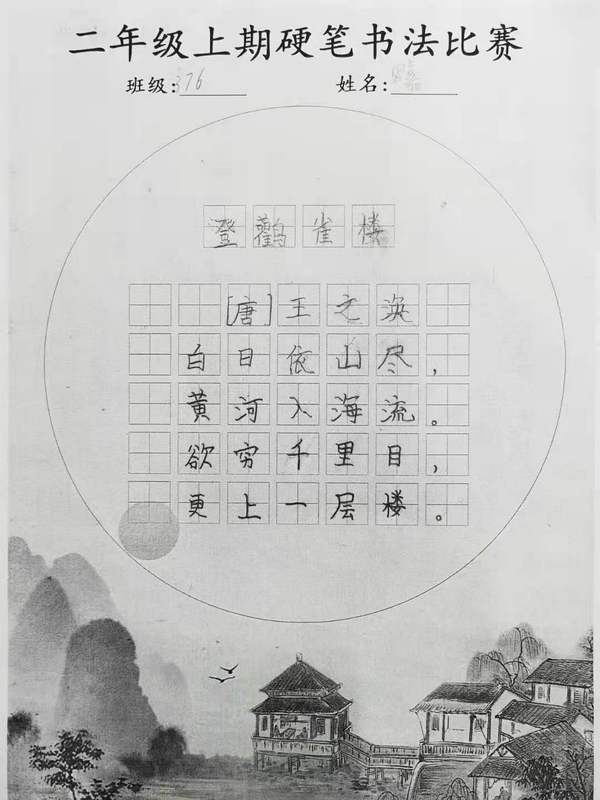 二年级上期硬笔书法比赛
班级:376 姓名:
登鹳雀楼
[唐]王之涣
白日依山尽,
黄河入海流。
欲穷千里目,
更上一层楼。